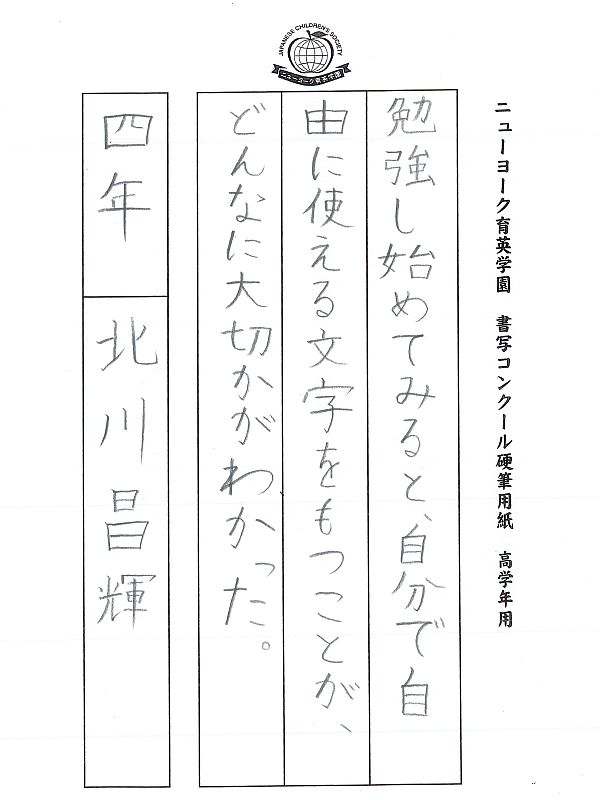 JAPANESE CHILDREN'S SOCIETY
ニューヨーク育英学園
ニューヨーク育英学園 書写コンクール硬筆用紙 高学年用
勉強し始めてみると、自分で自
由に使える文字をもつことが、
どんなに大切かがわかった。
四年 北川昌輝